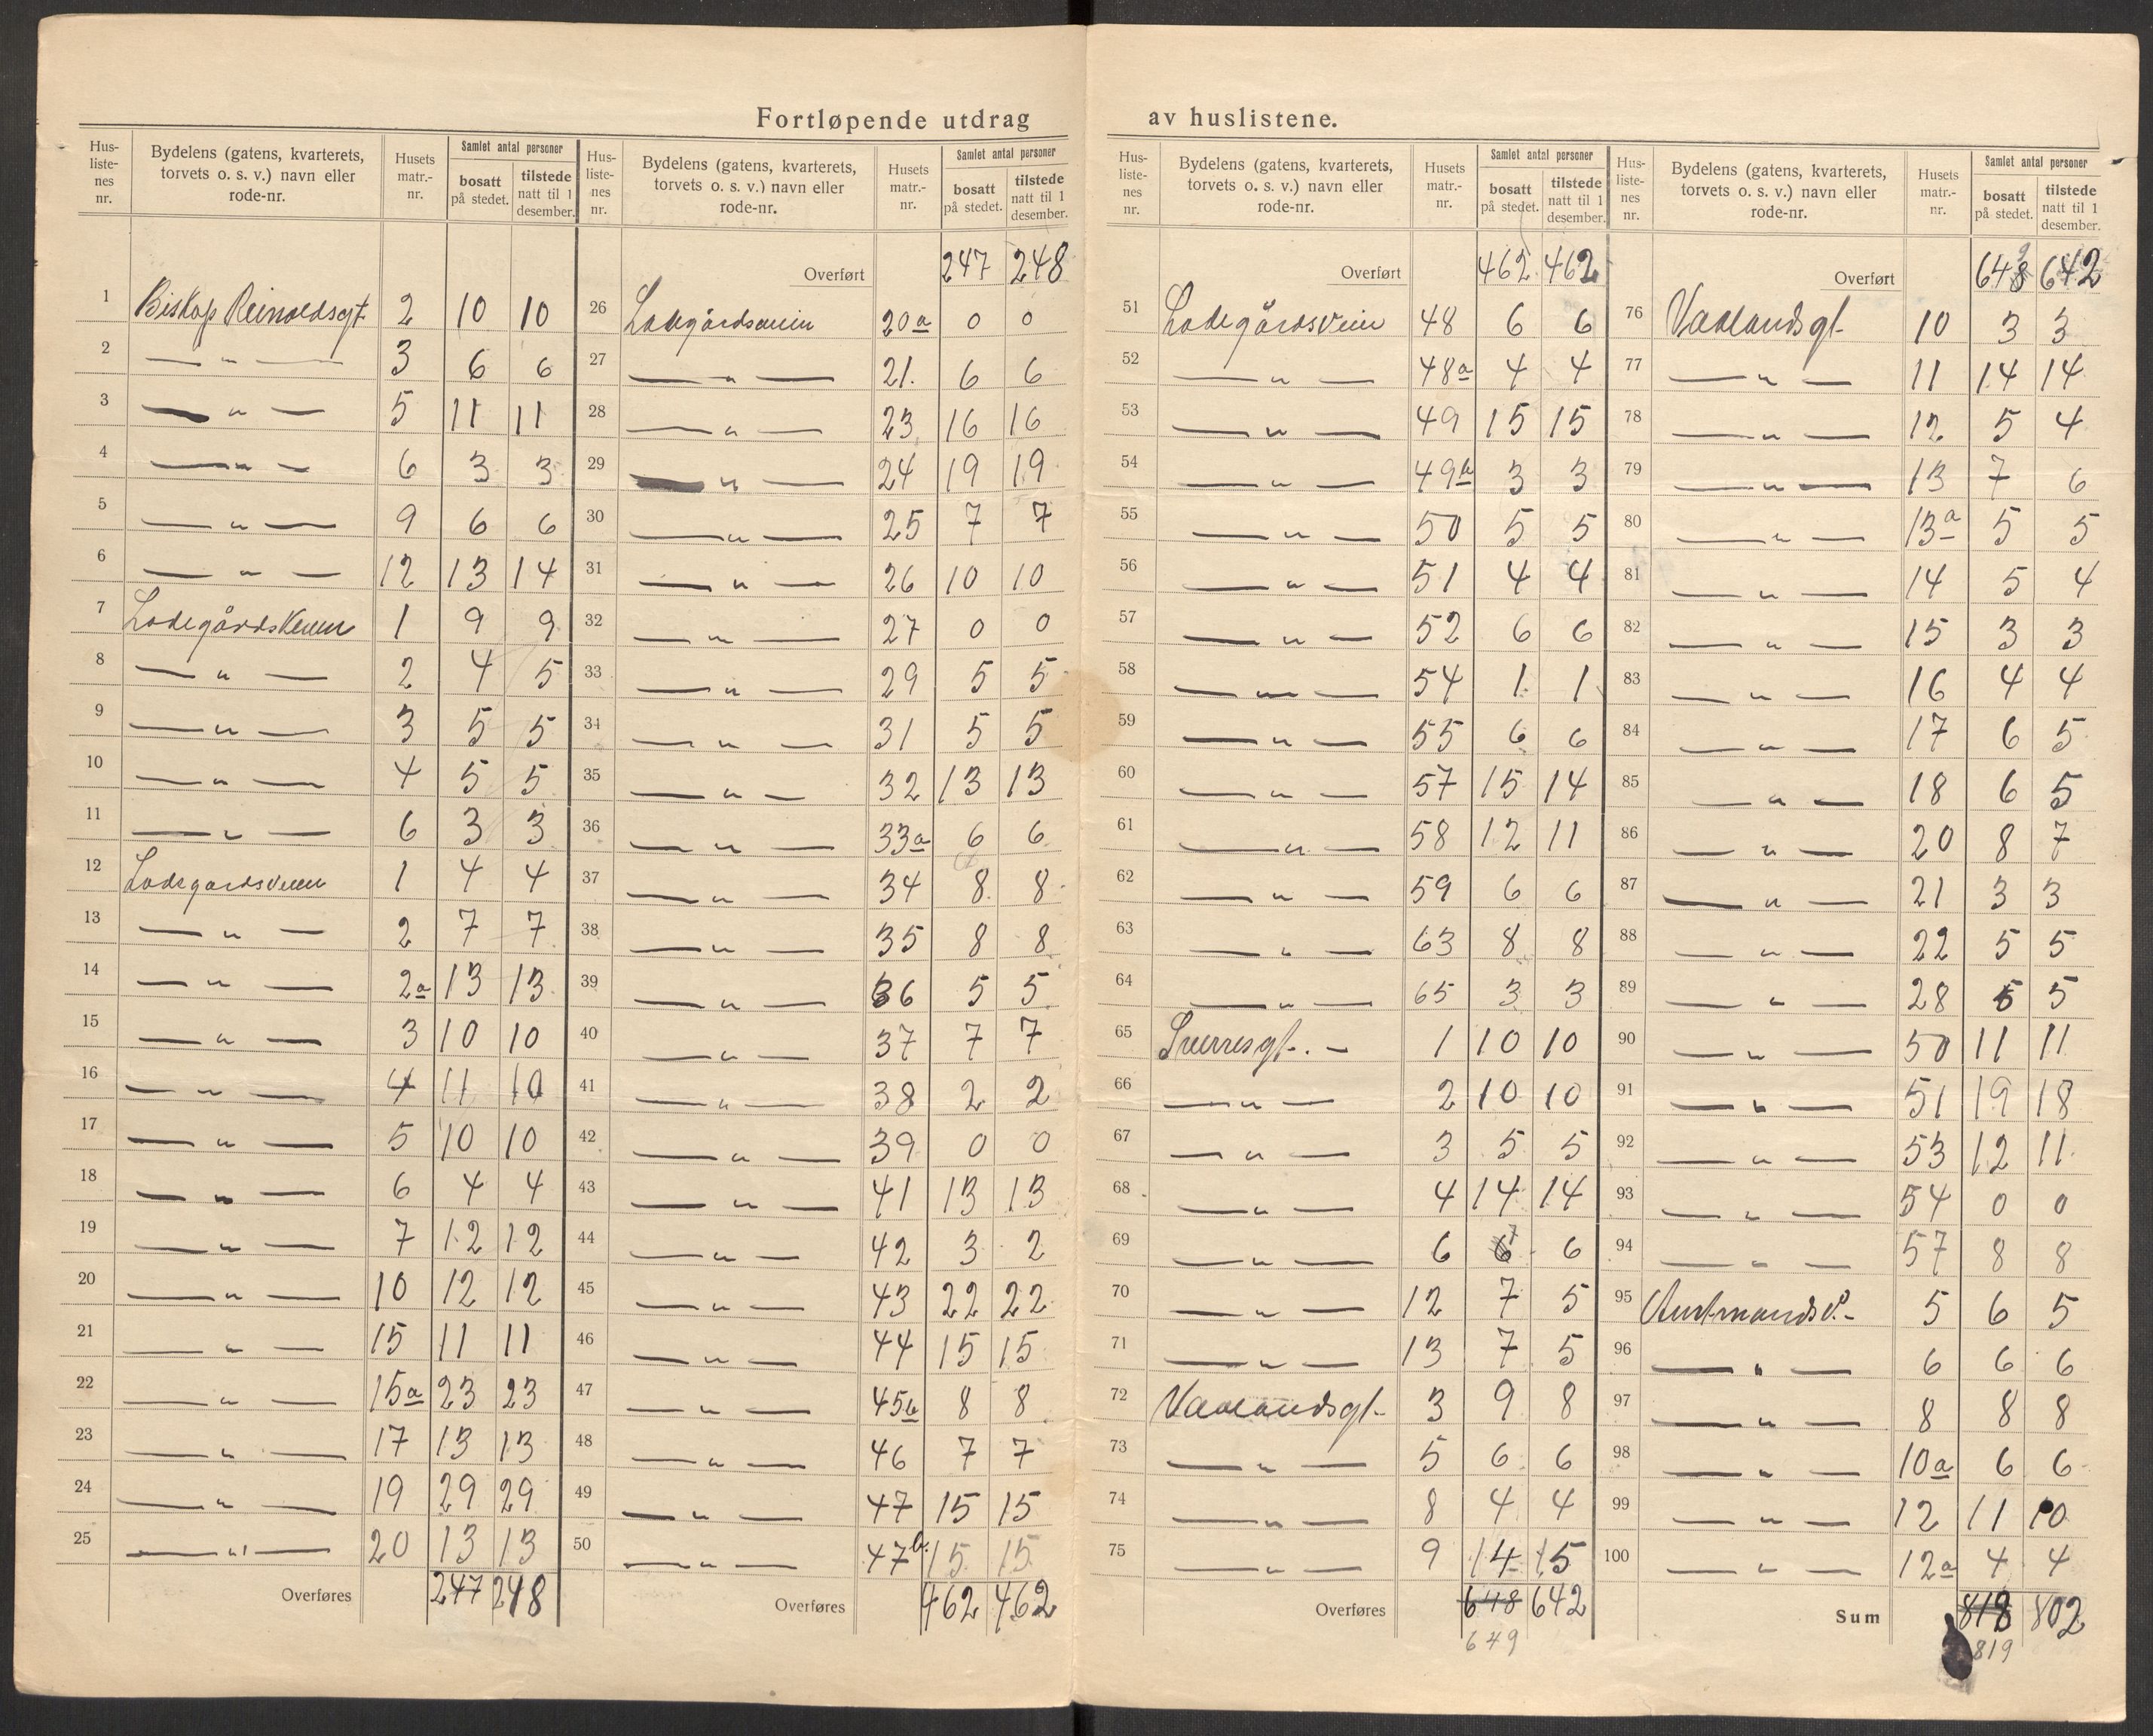 Fortløpende utdrag av huslistene.
Hus-liste-nes nr. Bydelens (gatens, kvarterets, torvets o. s. v.) navn eller rode-nr. Husets matr.-nr. Samlet antal personer bosatt på stedet. tilstede natt til 1 desember.
1 Biskop Reinoldsgt. 2 10 10
2 — " — 3 6 6
3 — " — 5 11 11
4 — " — 6 3 3
5 — " — 9 6 6
6 — " — 12 13 14
7 Ladegårdsveien 1 9 9
8 — " — 2 4 5
9 — " — 3 5 5
10 — " — 4 5 5
11 — " — 6 3 3
12 Ladegårdsveien 1 4 4
13 — " — 2 7 7
14 — " — 2a 13 13
15 — " — 3 10 10
16 — " — 4 11 10
17 — " — 5 10 10
18 — " — 6 4 4
19 — " — 7 12 12
20 — " — 10 12 12
21 — " — 15 11 11
22 — " — 15a 23 23
23 — " — 17 13 13
24 — " — 19 29 29
25 — " — 20 13 13
Overføres 247 248
Hus-liste-nes nr. Bydelens (gatens, kvarterets, torvets o. s. v.) navn eller rode-nr. Husets matr.-nr. Samlet antal personer bosatt på stedet. tilstede natt til 1 desember.
Overført 247 248
26 Ladegårdsveien 20a 0 0
27 — " — 21. 6 6
28 — " — 23 16 16
29 — " — 24 19 19
30 — " — 25 7 7
31 — " — 26 10 10
32 — " — 27 0 0
33 — " — 29 5 5
34 — " — 31 5 5
35 — " — 32 13 13
36 — " — 33a 6 6
37 — " — 34 8 8
38 — " — 35 8 8
39 — " — 36 5 5
40 — " — 37 7 7
41 — " — 38 2 2
42 — " — 39 0 0
43 — " — 41 13 13
44 — " — 42 3 2
45 — " — 43 22 22
46 — " — 44 15 15
47 — " — 45b 8 8
48 — " — 46 7 7
49 — " — 47 15 15
50 — " — 47b. 15 15
Overføres 462 462
Hus-liste-nes nr. Bydelens (gatens, kvarterets, torvets o. s. v.) navn eller rode-nr. Husets matr.-nr. Samlet antal personer bosatt på stedet. tilstede natt til 1 desember.
Overført 462 462
51 Ladegårdsveien 48 6 6
52 — " — 48a 4 4
53 — " — 49 15 15
54 — " — 49b 3 3
55 — " — 50 5 5
56 — " — 51 4 4
57 — " — 52 6 6
58 — " — 54 1 1
59 — " — 55 6 6
60 — " — 57 15 14
61 — " — 58 12 11
62 — " — 59 6 6
63 — " — 63 8 8
64 — " — 65 3 3
65 Sverresgt. — 1 10 10
66 — " — 2 10 10
67 — " — 3 5 5
68 — " — 4 14 14
69 — " — 6 6 7 6
70 — " — 12 7 5
71 — " — 13 7 5
72 Vaalandsgt. 3 9 8
73 — " — 5 6 6
74 — " — 8 4 4
75 — " — 9 14 15
Overføres 648 642
649
Hus-liste-nes nr. Bydelens (gatens, kvarterets, torvets o. s. v.) navn eller rode-nr. Husets matr.-nr. Samlet antal personer bosatt på stedet. tilstede natt til 1 desember.
9
Overført 648 642
76 Vaalandsgt. 10 3 3
77 — " — 11 14 14
78 — " — 12 5 4
79 — " — 13 7 6
80 — " — 13a 5 5
81 — " — 14 5 4
82 — " — 15 3 3
83 — " — 16 4 4
84 — " — 17 6 5
85 — " — 18 6 5
86 — " — 20 8 7
87 — " — 21 3 3
88 — " — 22 5 5
89 — " — 28 5 5
90 — " — 50 11 11
91 — " — 51 19 18
92 — " — 53 12 11
93 — " — 54 0 0
94 — " — 57 8 8
95 Austmandsv. — 5 6 5
96 — " — 6 6 6
97 — " — 8 8 8
98 — " — 10a 6 6
99 — " — 12 11 10
100 — " — 12a 4 4
Sum 818 802
819